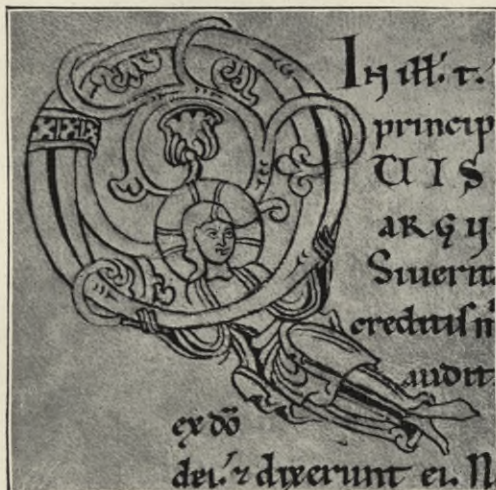 In ill̄. t̄.
princip
UIS
ARGUI
Siuerit
creditiſ m̄
audit
ex dō
dei. ⁊ dixerunt ei. N